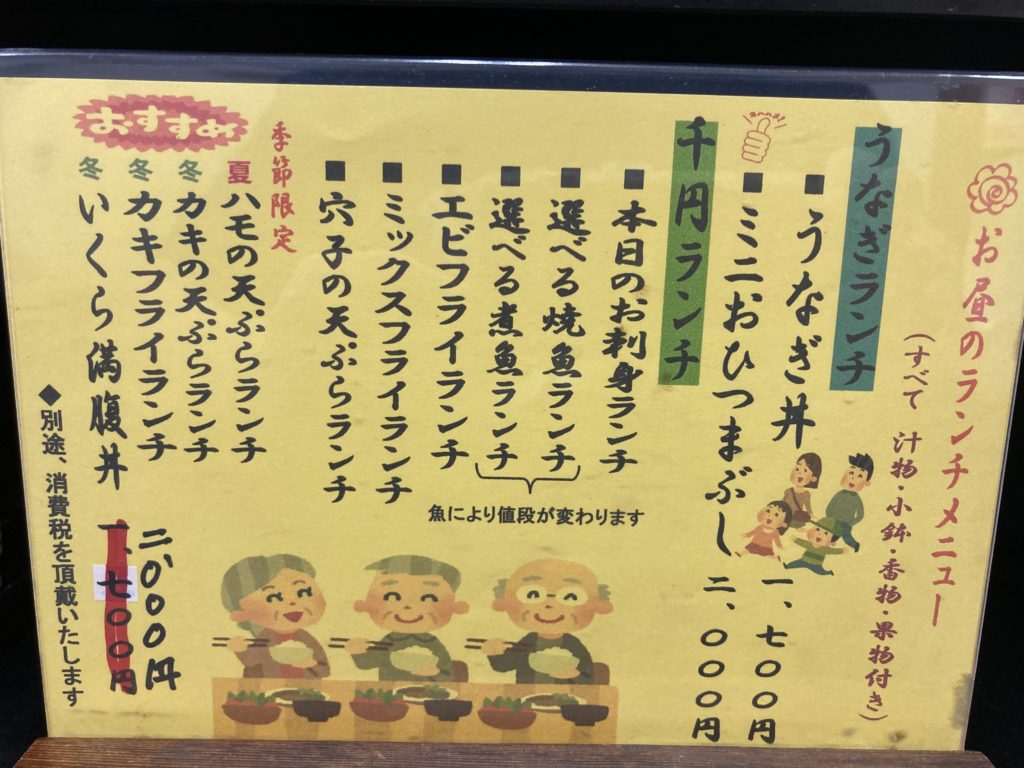 お昼のランチメニュー
(すべて 汁物・小鉢・香物・果物付き)
うなぎランチ
■うなぎ丼 一、七〇〇円
■ミニおひつまぶし 二、〇〇〇円
千円ランチ
■本日のお刺身ランチ
■選べる焼魚ランチ
■選べる煮魚ランチ
魚により値段が変わります
■エビフライランチ
■ミックスフライランチ
■穴子の天ぷらランチ
季節限定
おすすめ
夏 ハモの天ぷらランチ
冬 カキの天ぷらランチ
冬 カキフライランチ
冬 いくら満腹丼 一、七〇〇円
二、〇〇〇円
◆別途、消費税を頂戴いたします